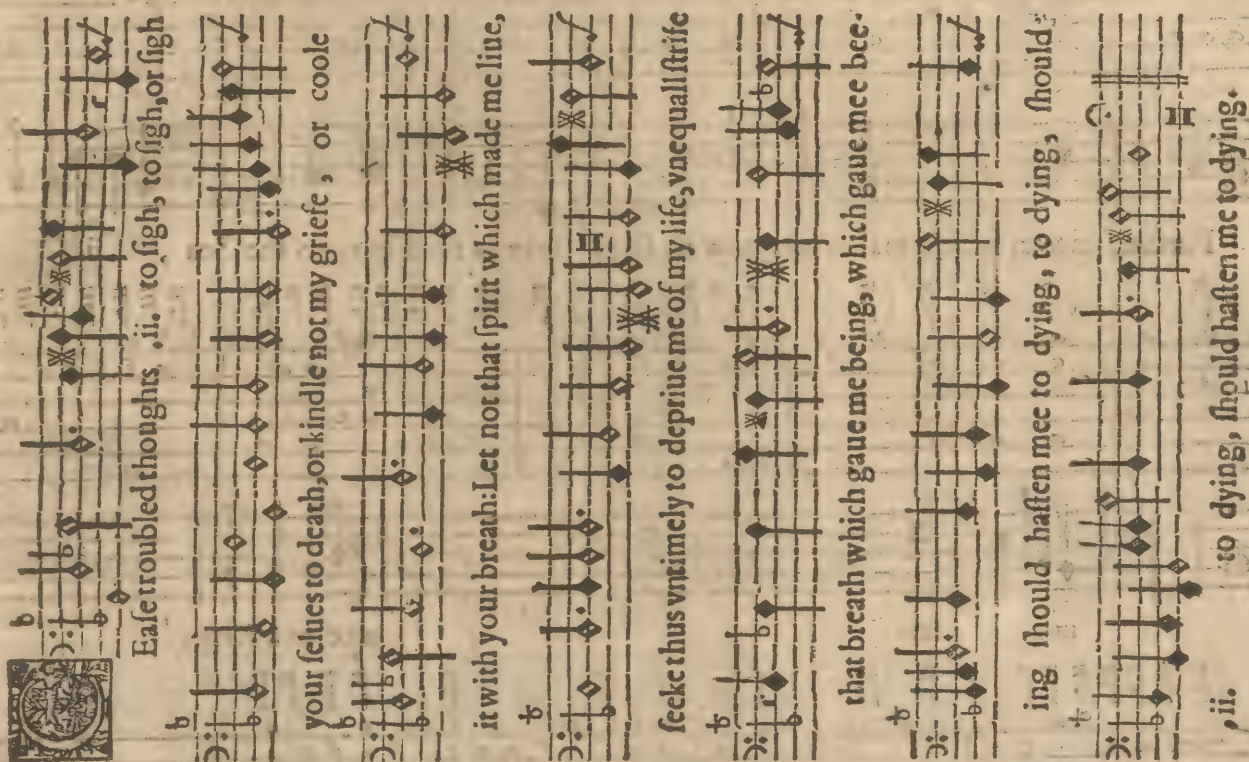 CEaſe troubled thoughts ,ii. to ſigh, to ſigh, or ſigh
your ſelues to death, or kindle not my griefe, or coole
it with your breath: Let not that ſpirit which made me liue,
ſeeke thus vntimely to depriue me of my life, vnequall ſtrife
that breath which gaue me being, which gaue mee bee-
ing ſhould haſten mee to dying, to dying, ſhould,
,ii. to dying, ſhould haſten me to dying.